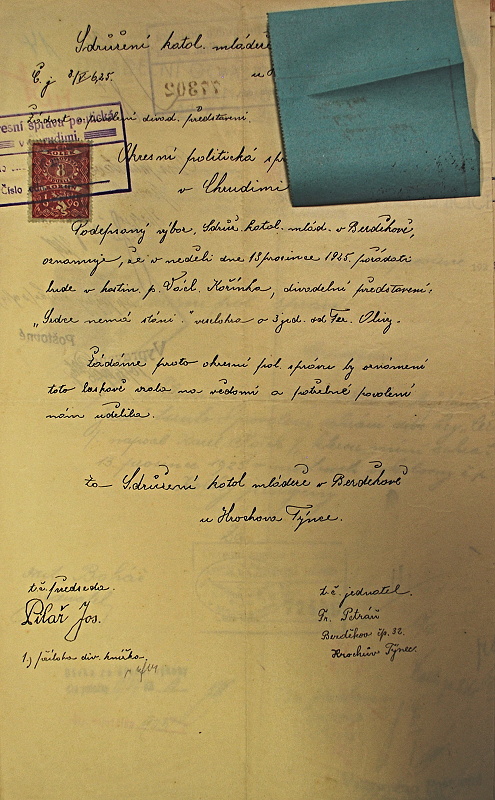 Sdružení katol. mládeže
Č. j. 8/V 625.
Žádost o povolení divad. představení.
Okresní správa politická
v Chrudimi.
Číslo
Okresní politická sp
v Chrudimi
Podepsaný výbor, Sdruž. katol. mlád. v Berdíkově,
oznamuje, že v neděli dne 13 prosince 1925 pořádati
bude v hostin. p. Václ. Kořínka, divadelní představení:
„Srdce nemá stání." veselohra o 3 jed. od Fer. Olivy.
Žádáme proto okresní pol. správu by oznámení
toto laskavě vzala na vědomí a potřebné povolení
nám udělila.
Za Sdružení katol mládeže v Berdíkově
u Hrochova Týnce.
t. č. předseda.
Pilař Jos.
1) příloha div. knížka.
t. č. jednatel.
Fr. Petráň
Berdíkov čp. 32.
Hrochův Týnec.